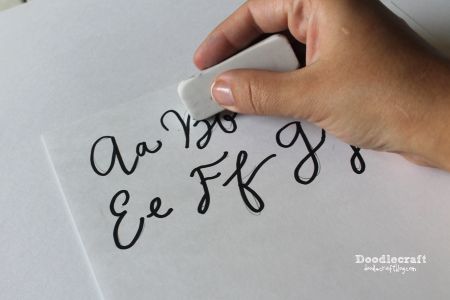 Aa Bb
Ee Ff Gg
Doodlecraft
doodlecraftblog.com